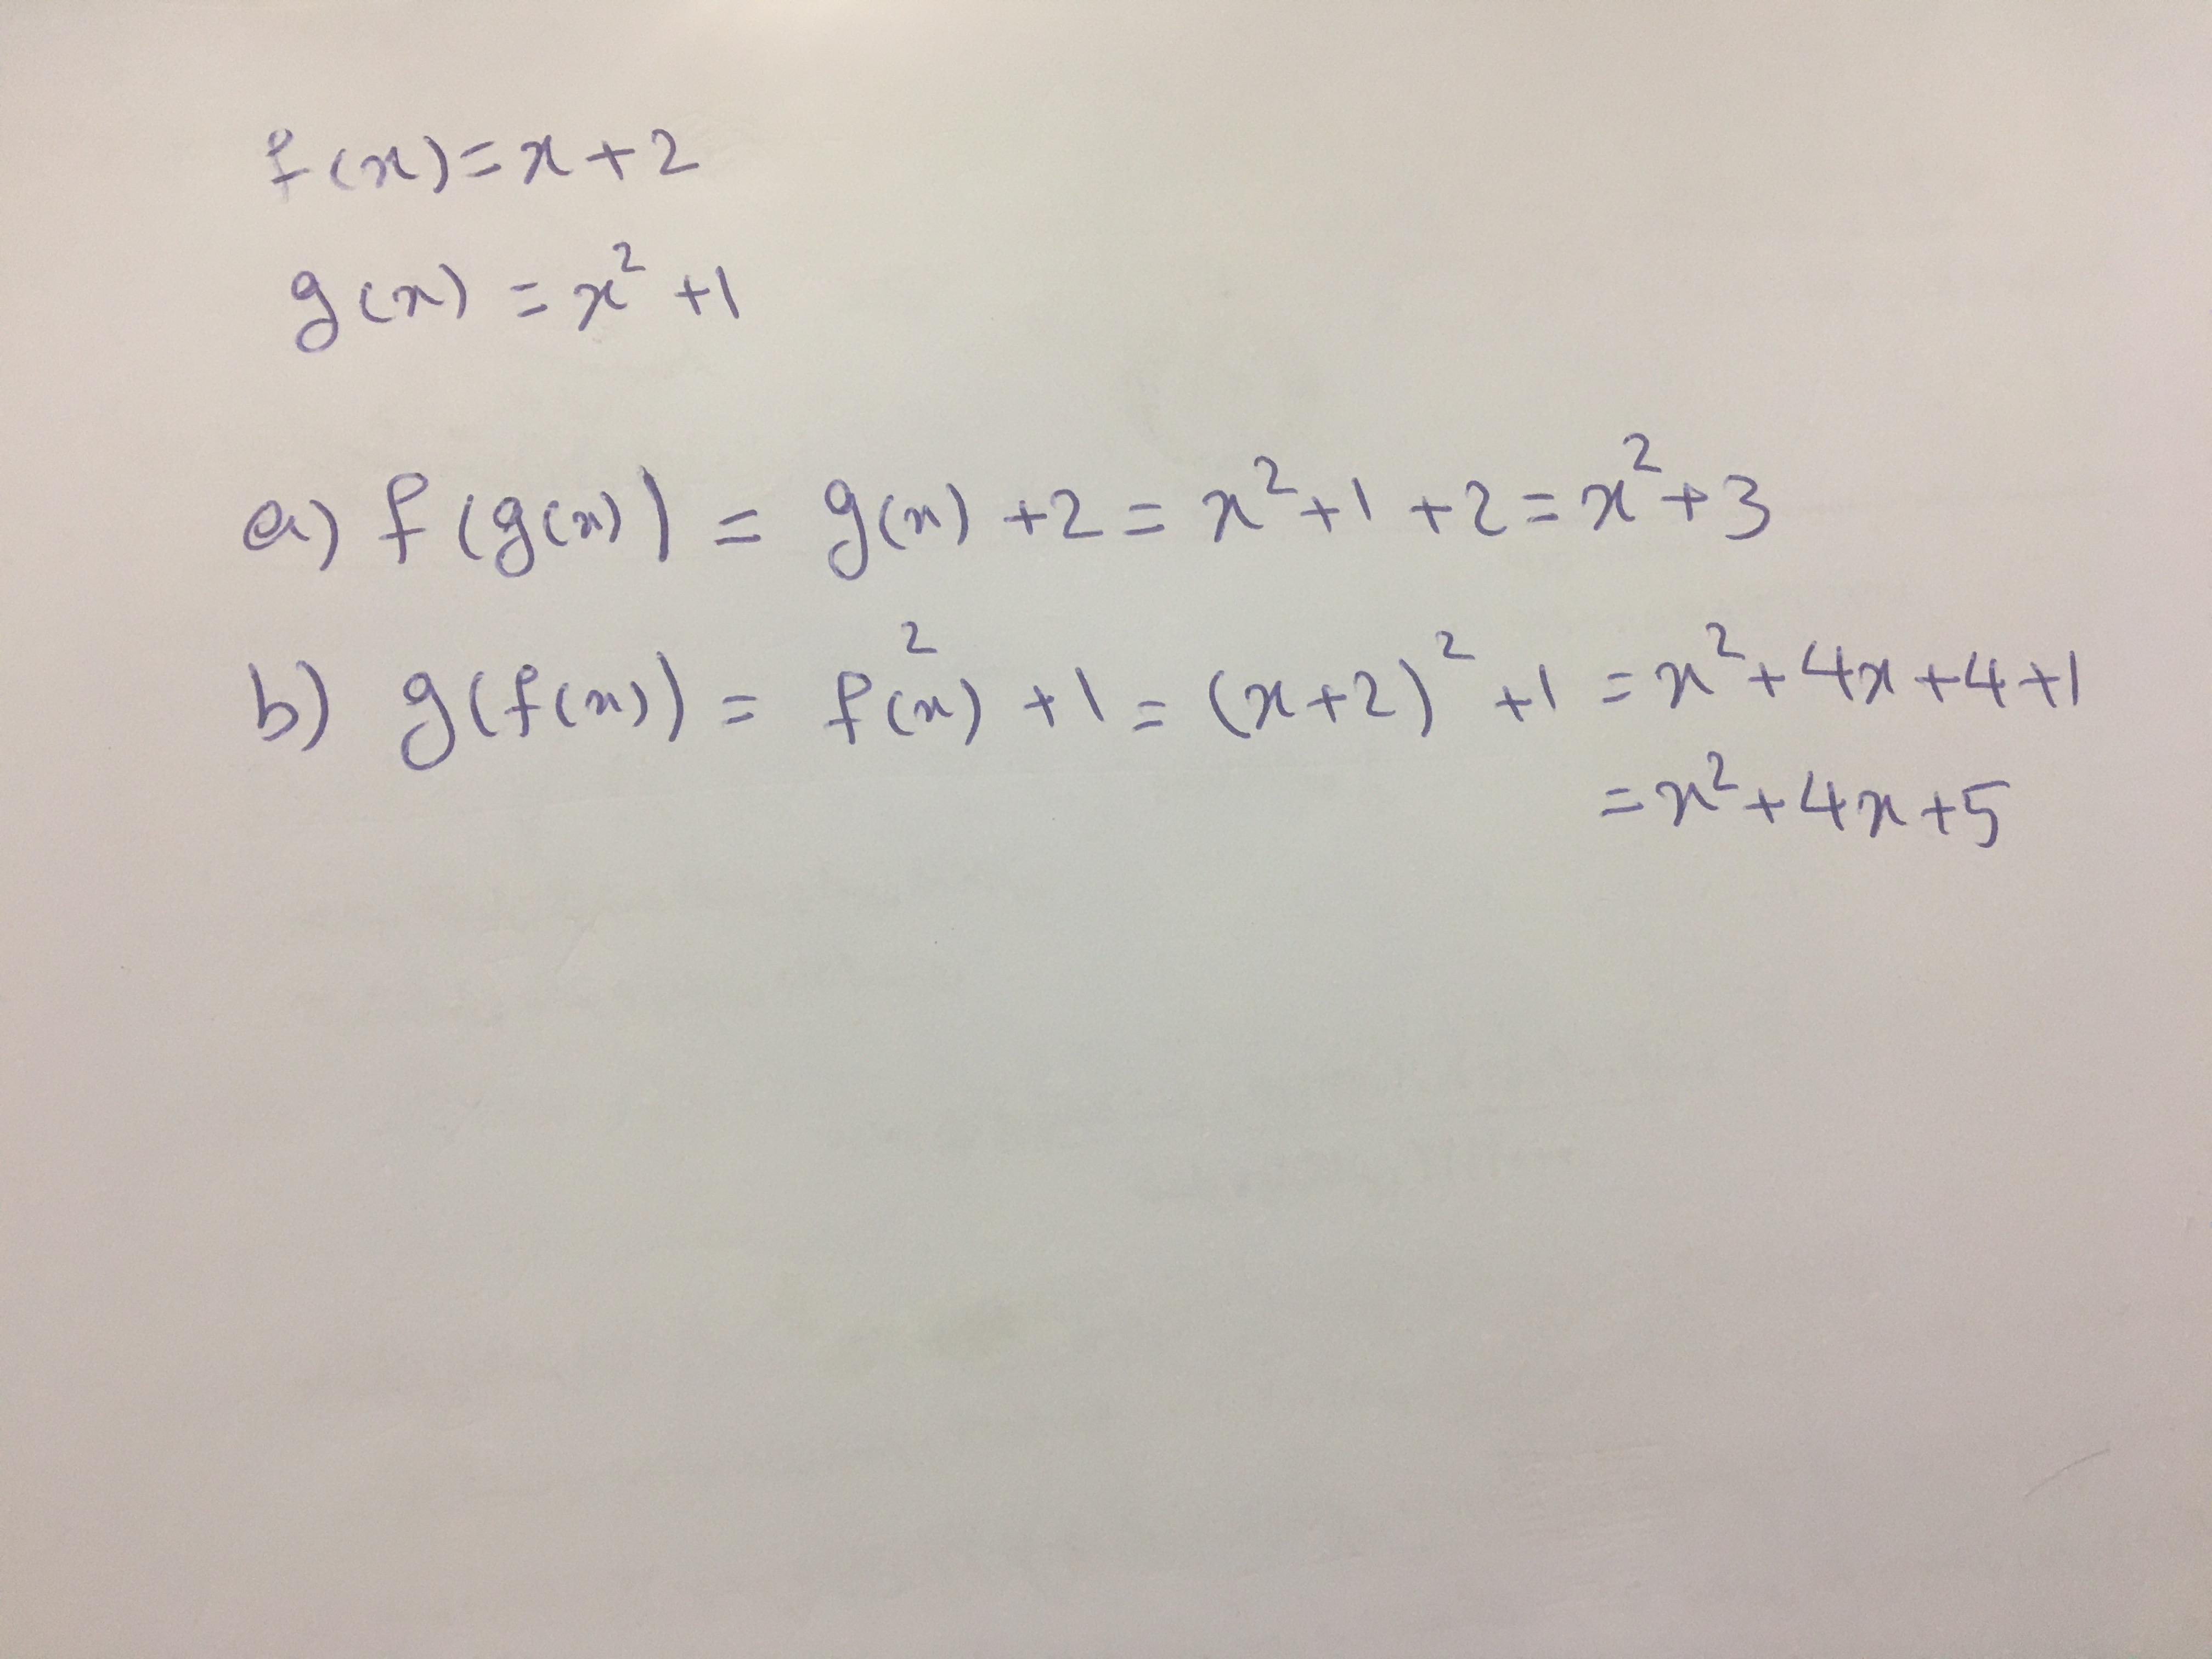 f(x)=x+2
g(x) = x² +1
a) f(g(x)) = g(x) +2 = x²+1 +2 = x²+3
b) g(f(x)) = f²(x) +1 = (x+2)² +1 = x²+4x+4+1
= x²+4x+5